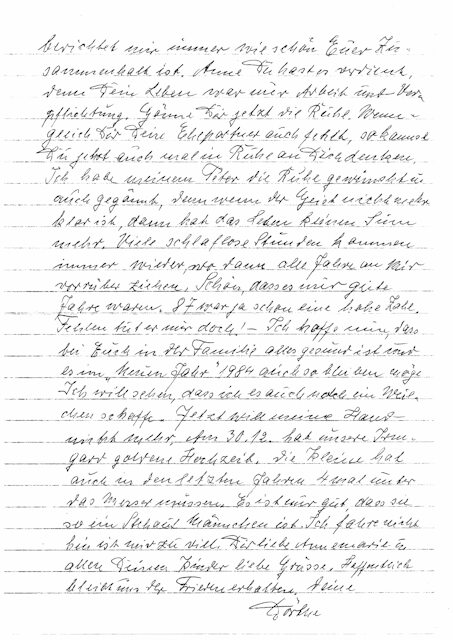 berichtet mir immer wie schön Euer Zu-
sammenhalt ist. Anne Du hast es verdient,
denn Dein Leben war nur Arbeit und Ver-
pflichtung. Gönne Dir jetzt die Ruhe. Wenn-
gleich Dir Dein Ehepartner auch fehlt, so kannst
Du jetzt auch mal in Ruhe an Dich denken.
Ich habe meinem Peter die Ruhe gewünscht u.
auch gegönnt, denn wenn der Geist nicht mehr
klar ist, dann hat das Leben keinen Sinn
mehr. Viele schlaflose Stunden kommen
immer wieder, wo dann alle Jahre an mir
vorrüber ziehen. Schön, dass es nur gute
Jahre waren. 87 war ja schon eine hohe Zahl.
Fehlen tut er mir doch! - Ich hoffe nun, dass
bei Euch in der Familie alles gesund ist und
es im "Neuen Jahr" 1984 auch so bleiben möge
Ich will sehen, dass ich es auch noch ein Weil-
chen schaffe. Jetzt will meine Hand
nicht mehr. Am 30.12. hat unsere Irm-
gard goldene Hochzeit. Die Kleine hat
auch in den letzten Jahren 4 mal unter
das Messer müssen. Es ist nur gut, dass sie
so ein Stehauf Männchen ist. Ich fahre nicht
hin ist mir zu viel. Dir liebe Annemarie u.
allen Deinen Kinder liebe Grüsse. Hoffentlich
bleibt uns der Frieden erhalten. Deine
Dörthe